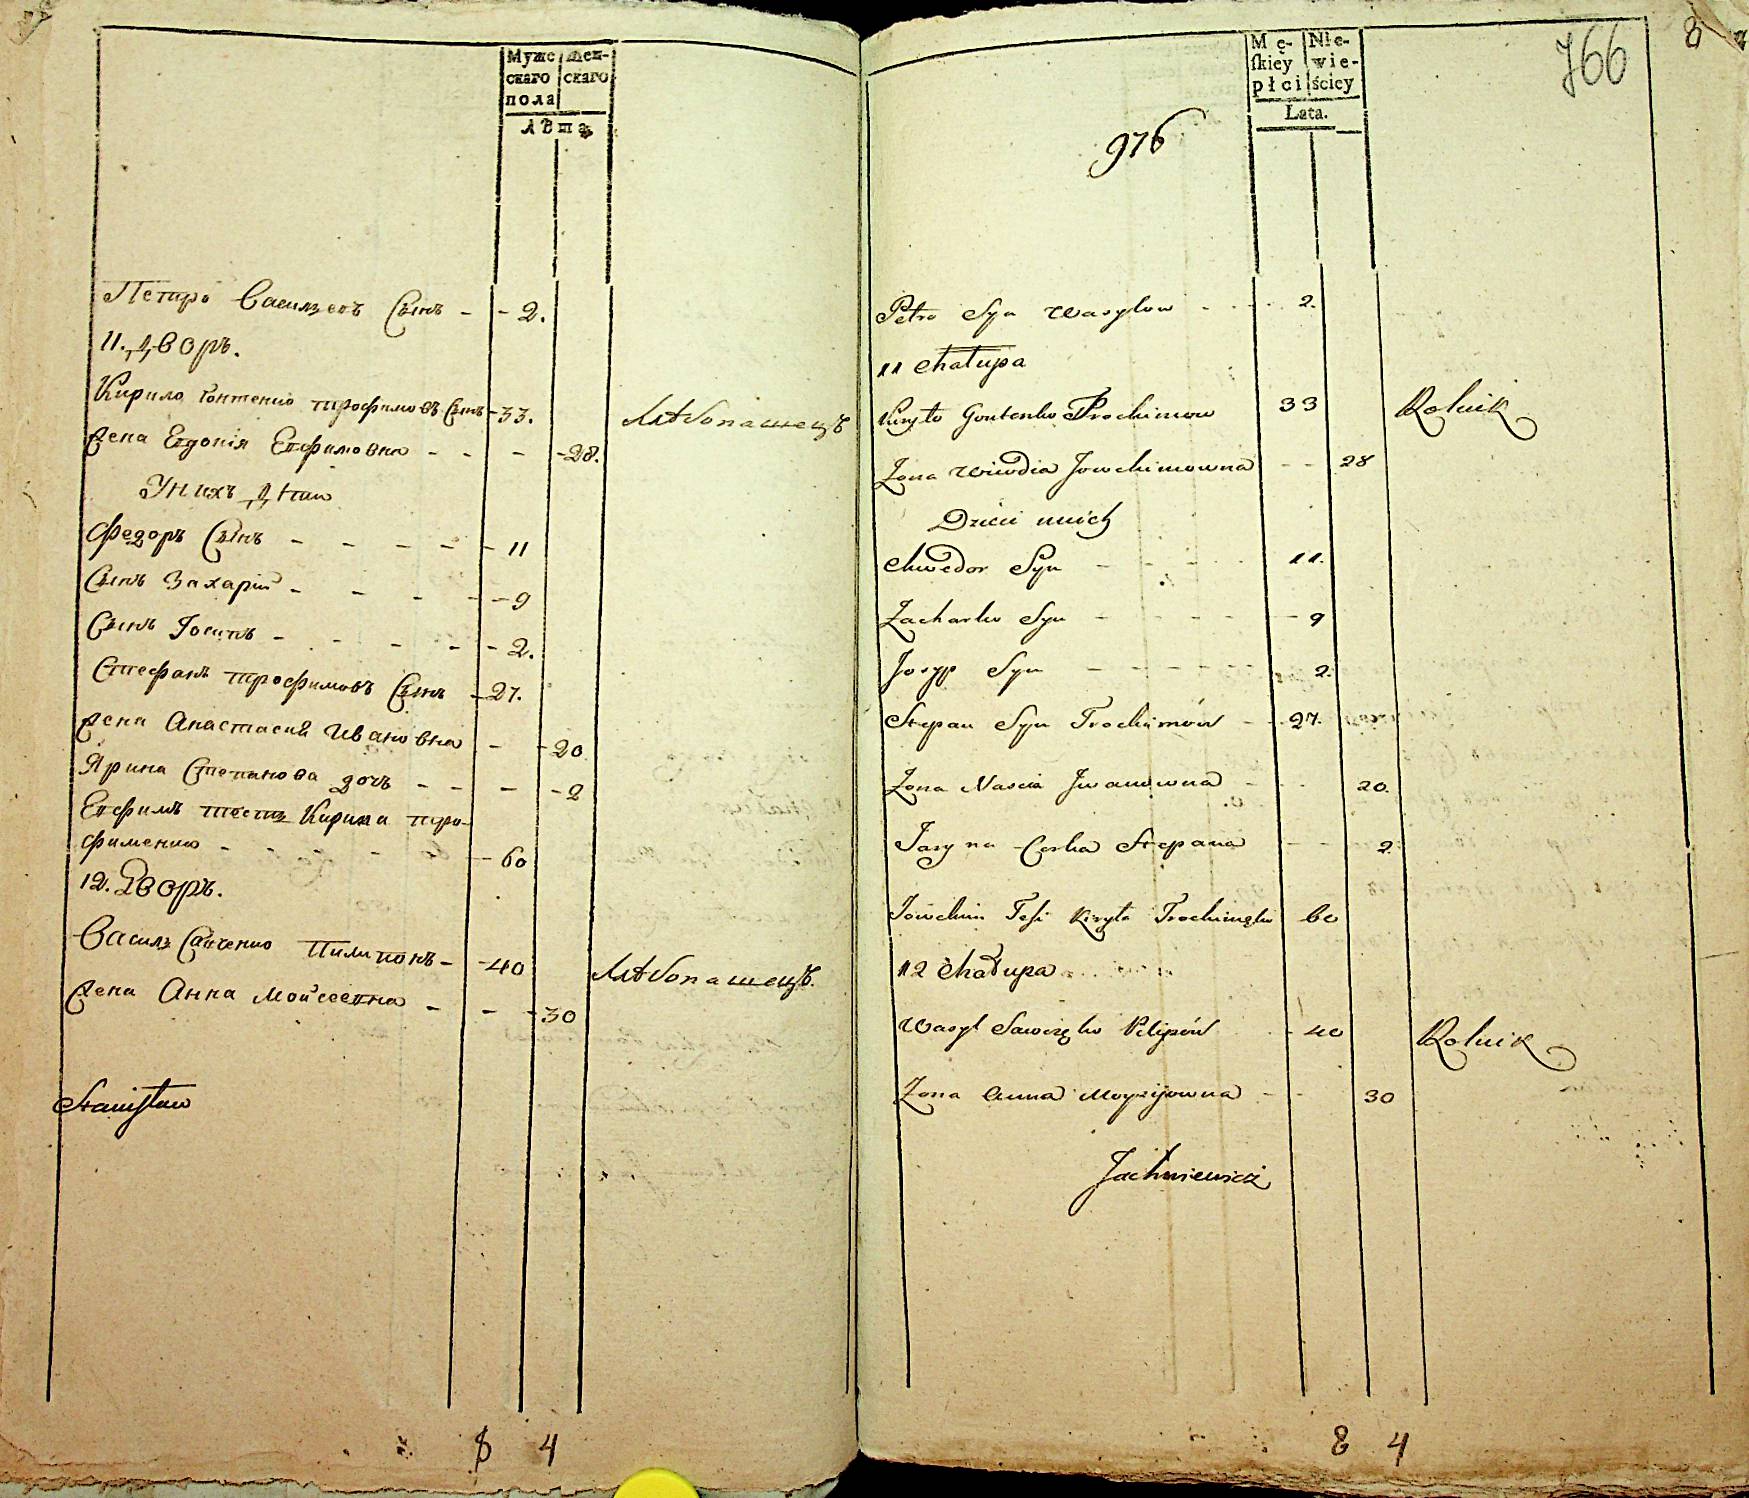 Муже Жен-
скаго скаго
пола
Лѣта
Петро Васильевъ Сынъ - - 2.
11. Дворъ.
Кирило Гонтенко Трофимовъ Сынъ - 33. Хлѣбопашецъ
Жена Евдокія Евфимовна - - - - 28.
У нихъ дѣти
Федоръ Сынъ - - - - - 11
Сынъ Захарій - - - - - 9
Сынъ Іосипъ - - - - - 2.
Стефанъ Трофимовъ Сынъ - 27.
Жена Анастасия Ивановна - - 20
Ярина Степанова дочь - - - - 2
Евфимъ тесть Кирила Тро-
фименко - - - - 60
12. Дворъ.
Василь Савченко Пилиповъ - - 40 Хлѣбопашецъ.
Жена Анна Мойсеевна - - - 30
Stanisław
8 4
8
766
Mę- Nie-
skiey wie-
płci ściey
Lata.
976
Petro Syn Wasylow - - - - 2.
11 Chałupa
Kiryło Gontenko Trochimow 33 Rolnik
Zona Wiwdia Jowchimowna - - 28
Dzieci unich
Chwedor Syn - - - - 11.
Zacharko Syn - - - - - 9
Josyp Syn - - - - - 2.
Stepan Syn Trochimów - - 27.
Zona Nascia Jwanowna - - - 20.
Jaryna Corka Stepana - - 2.
Jowchim Teść Kiryła Trochimęko 60
12 Chałupa
Wasyl Sawczęko Pilipów - 40 Rolnik
Zona Anna Moyzijowna - - 30
Jachniewicz
8 4